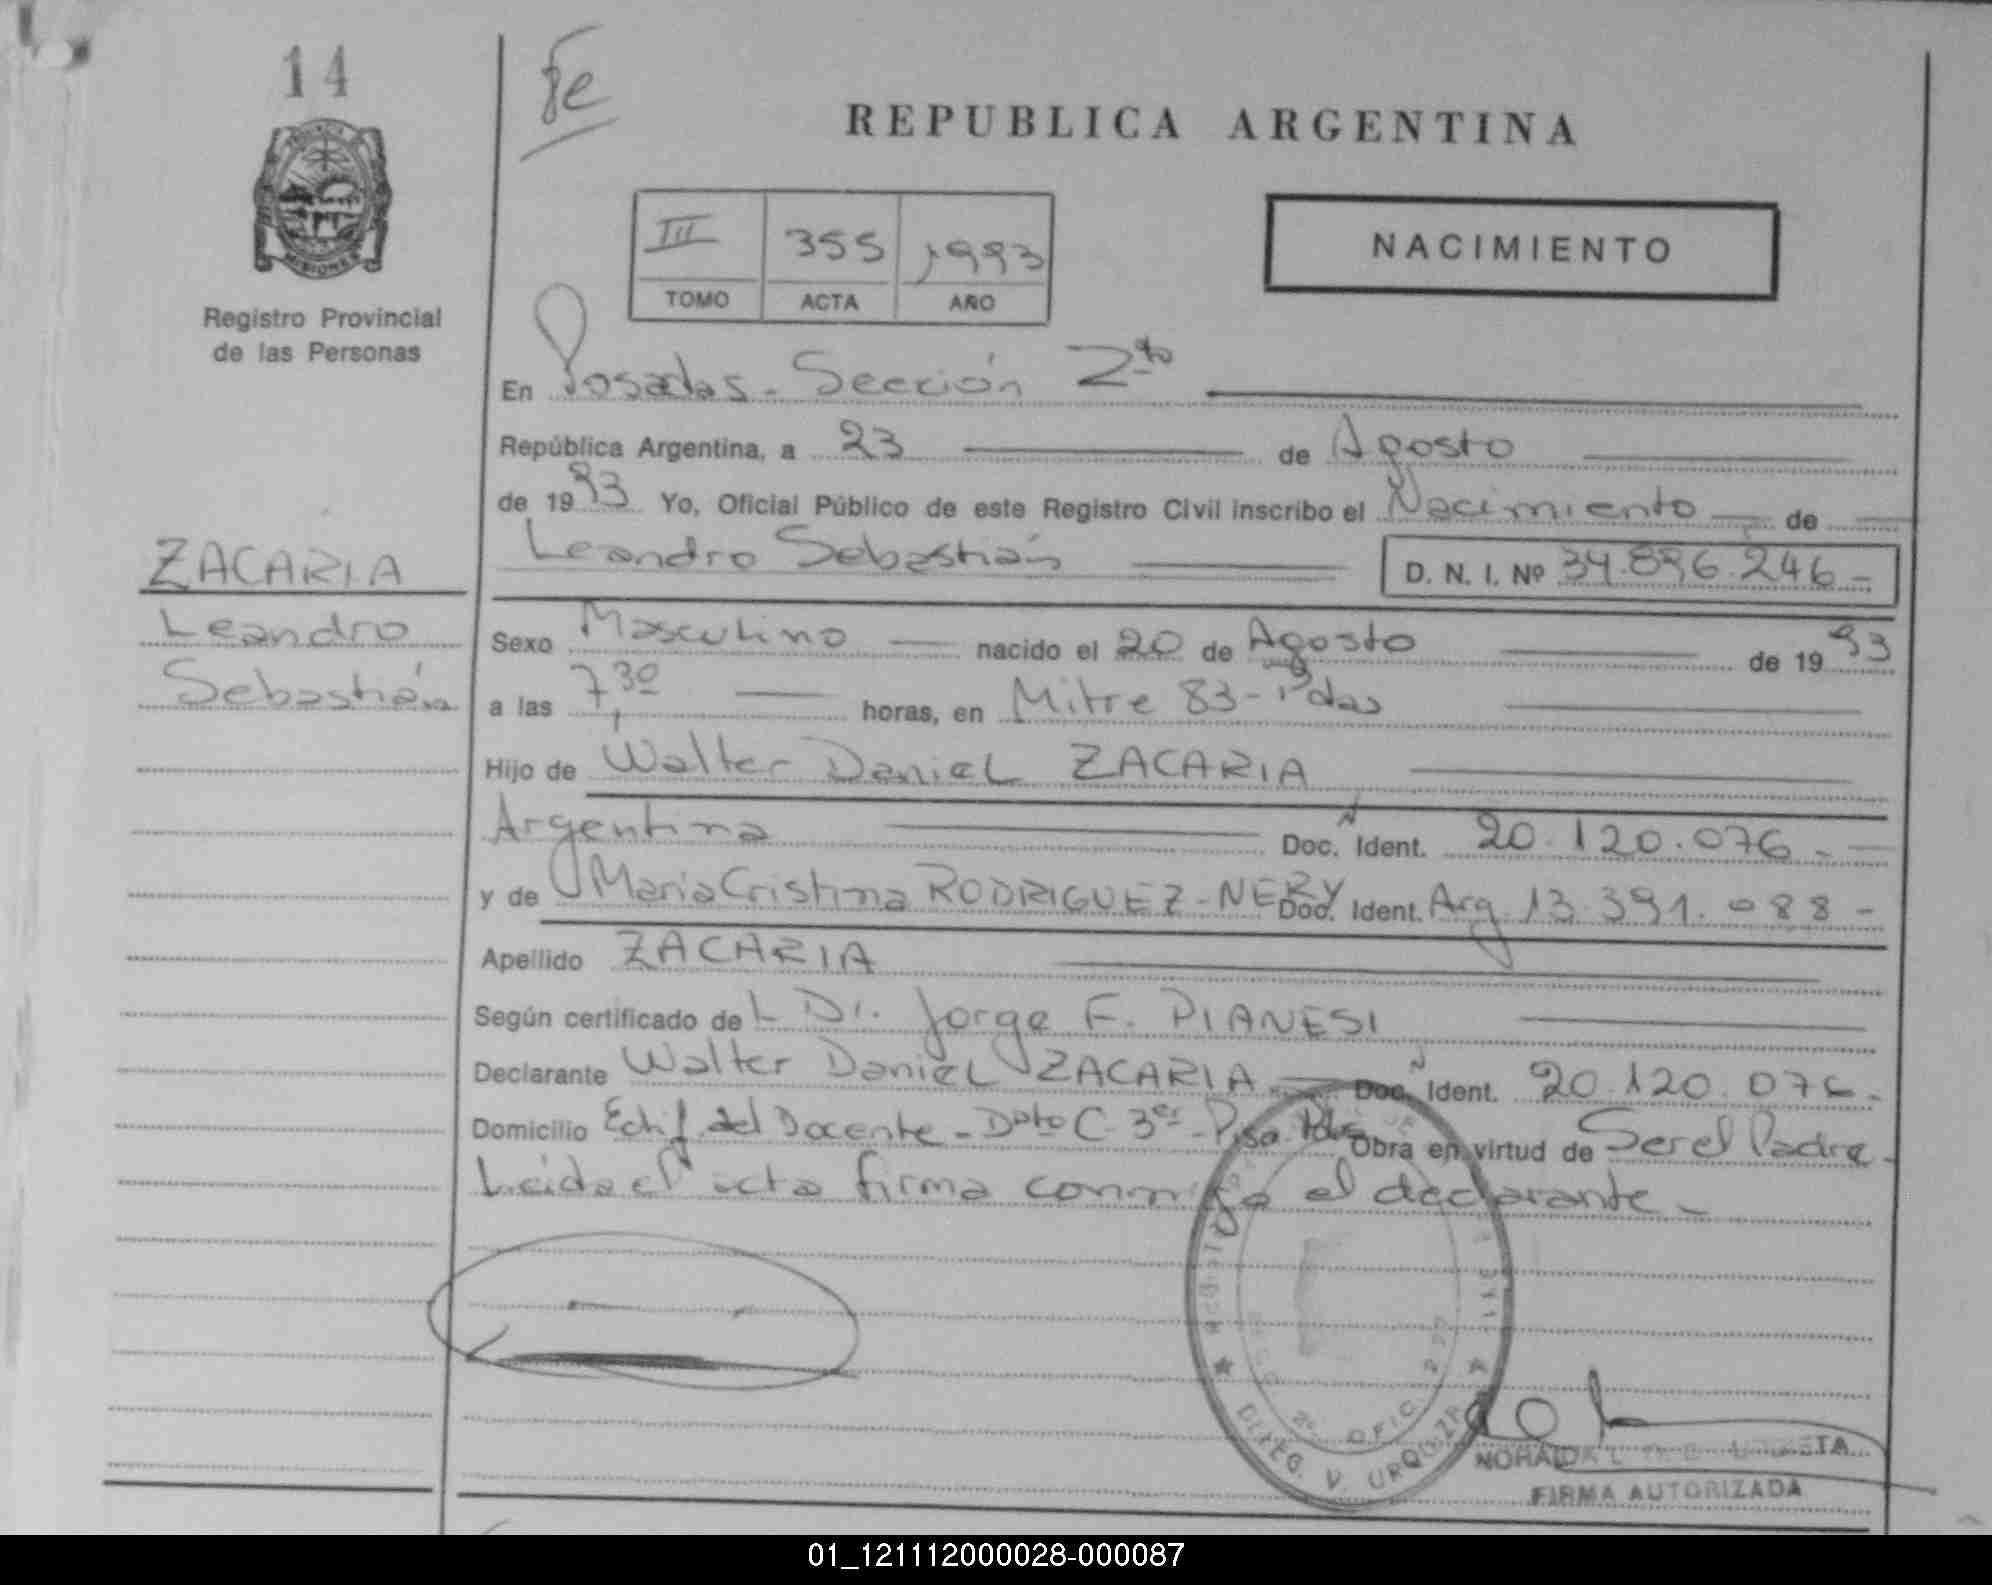 14
REPUBLICA ARGENTINA
III 355 1993
TOMO ACTA AÑO
NACIMIENTO
MISIONES
Registro Provincial
de las Personas
ZACARIA
Leandro
Sebastián
En Posadas - Sección 2da
República Argentina, a 23 de Agosto
de 1993 Yo, Oficial Público de este Registro Civil inscribo el Nacimiento de
Leandro Sebastián D. N. I. Nº 34.896.246-
Sexo Masculino nacido el 20 de Agosto de 1993
a las 7,30 horas, en Mitre 83 - Pdas
Hijo de Walter Daniel ZACARIA
Argentina Doc. Ident. 20.120.076.-
y de Maria Cristina RODRIGUEZ-NERY Doc. Ident. Arg 13.391.088-
Apellido ZACARIA
Según certificado del Dr. Jorge F. PIANESI
Declarante Walter Daniel ZACARIA Doc. Ident. 20.120.076-
Domicilio Edif. del Docente - Dpto C - 3er Piso. Pdas Obra en virtud de Ser el Padre-
Leída el acta firma conmigo el declarante-
OFIC.
V. URQUIZA
FIRMA AUTORIZADA
01_121112000028-000087